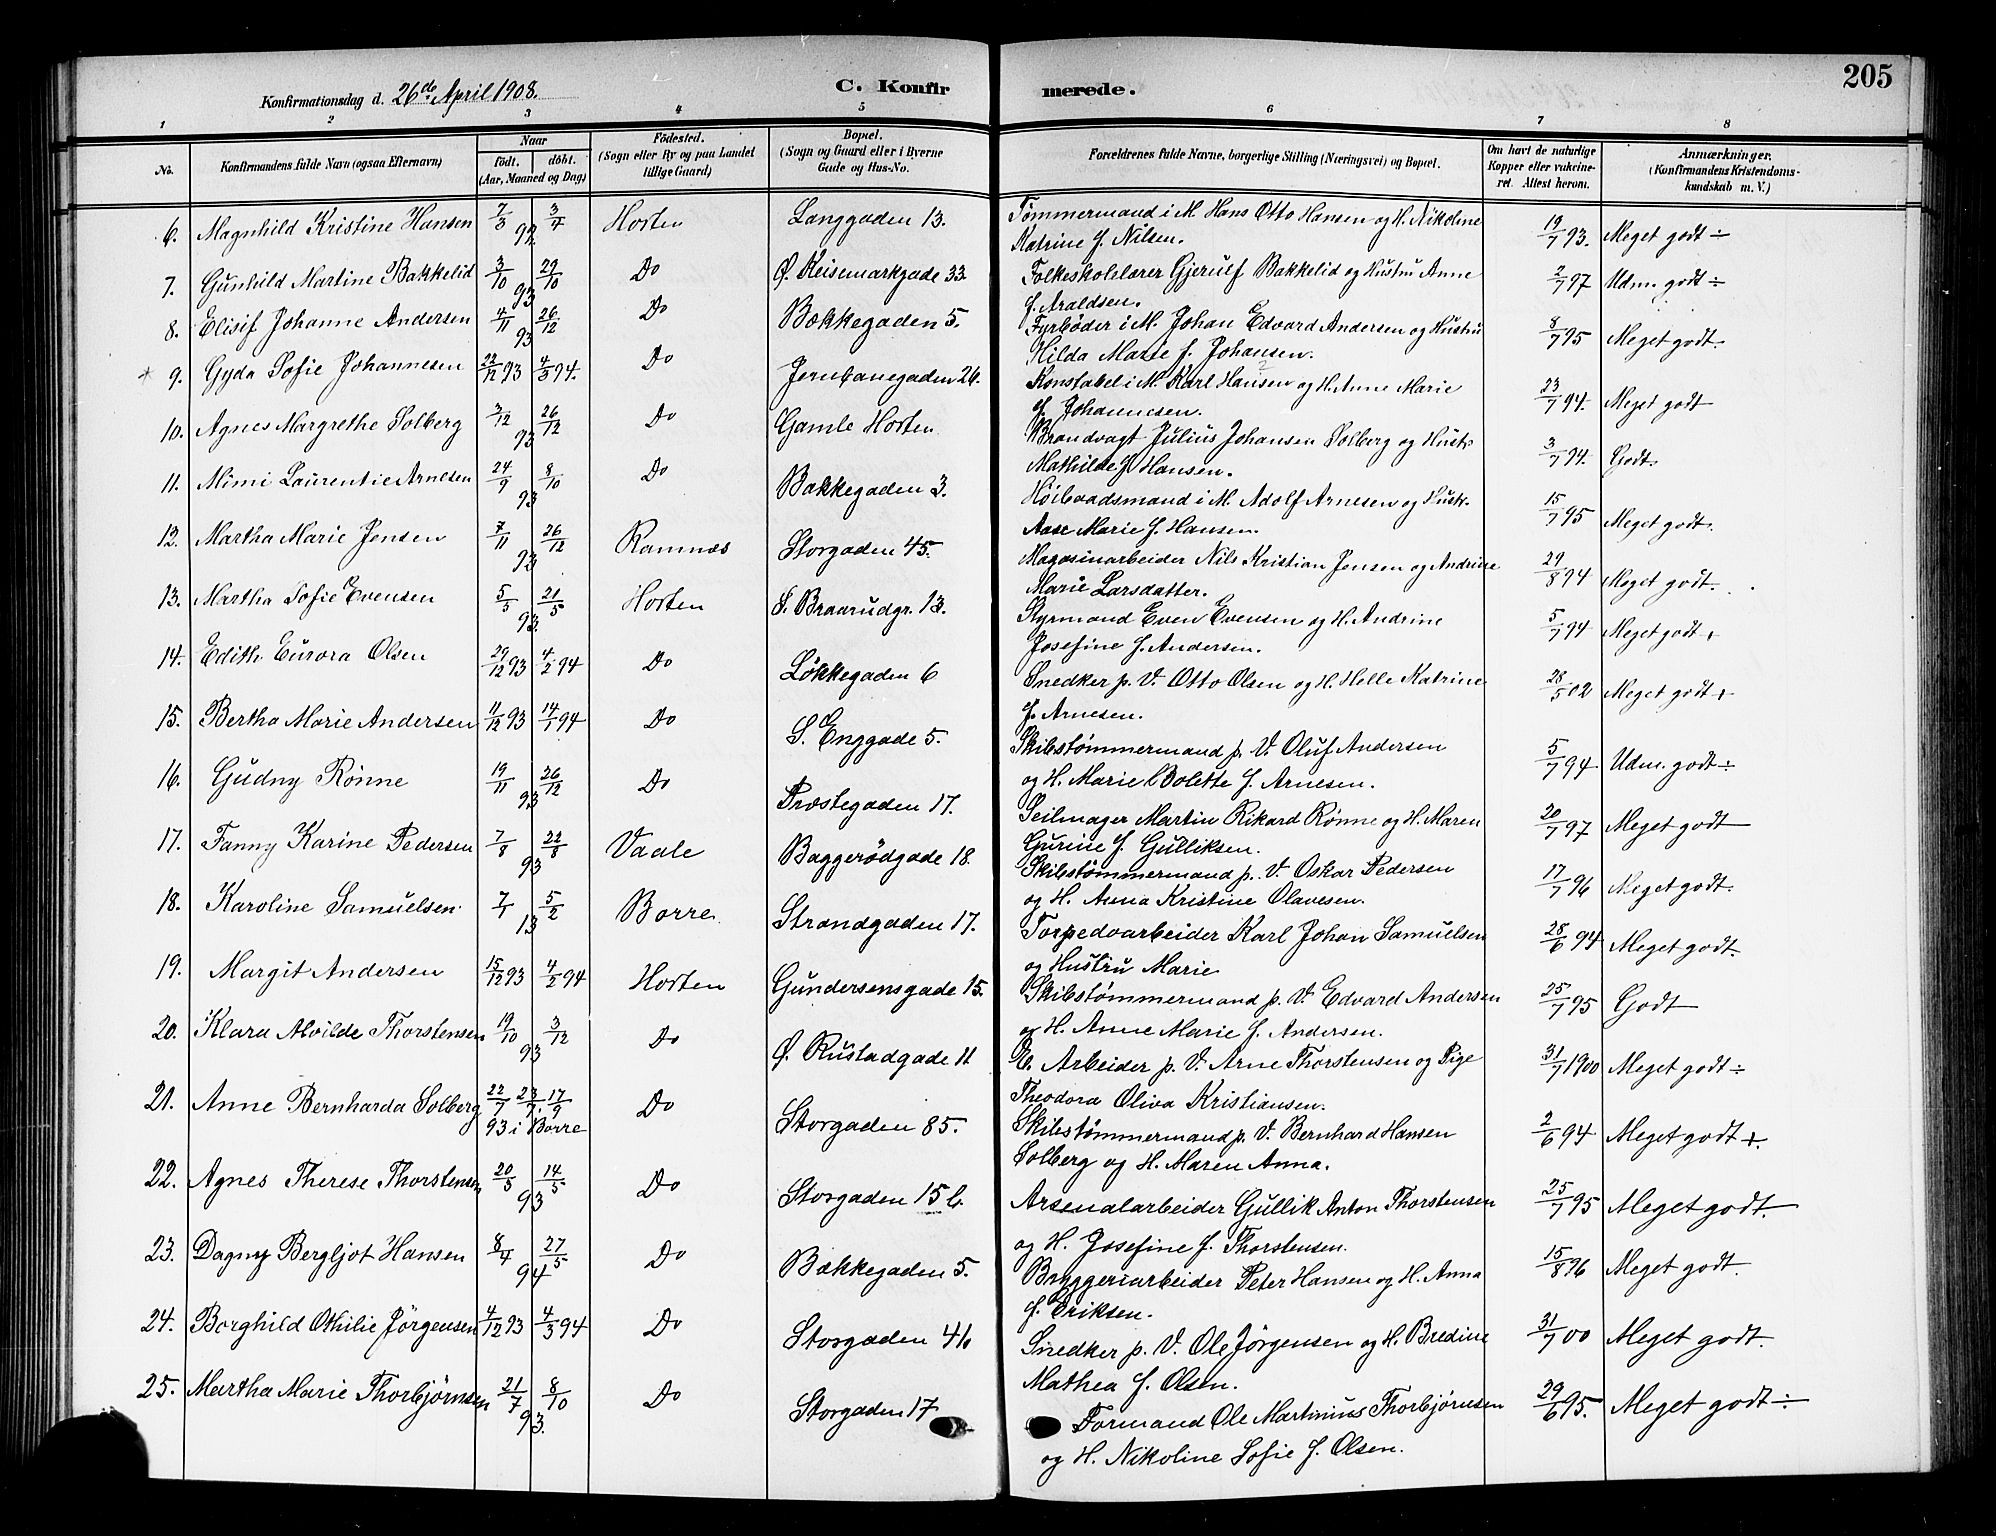 205
Konfirmationsdag d. 26de April 1908. C. Konfir merede.
1 2 3 4 5 6 7 8
No. Konfirmandens fulde Navn (ogsaa Efternavn) Naar født. döbt. (Aar, Maaned og Dag) Födested. (Sogn eller By og paa Landet tillige Gaard) Bopæl. (Sogn og Gaard eller i Byerne Gade og Hus-No. Forældrenes fulde Navne, borgerlige Stilling (Næringsvei) og Bopæl. Om havt de naturlige Kopper eller vakcineret. Attest herom. Anmærkninger. (Konfirmandens Kristendomskundskab m. V.)
6. Magnhild Kristine Hansen 7/3 92 3/4 Horten Langgaden 13. Tømmermand i M. Hans Otto Hansen og H. Nikoline 19/7 93. Meget godt ÷
Katrine f. Nilsen.
7. Gunhild Martine Bakkelid 3/10 93 29/10 Do Ø. Keisemarkgade 33 Folkeskolelærer Gjerulf Bakkelid og Hustru Anne 2/7 97 Udm. godt ÷
f. Araldsen.
8. Elisif Johanne Andersen 4/11 93 26/12 Do Bakkegaden 5. Fyrbøder i M. Johan Edvard Andersen og Hustru 8/7 95 Meget godt.
Hilda Marie f. Johansen.
* 9. Gyda Sofie Johannesen 22/12 93 4/3 94. Do Jernbanegaden 26. Konstabel i M. Karl Hansen og H. Anne Marie 23/7 94. Meget godt
f. Johannesen.
10. Agnes Margrethe Solberg 3/12 93 26/12 Do Gamle Horten Brandvagt Julius Johansen Solberg og Hustr. 3/7 94. Godt
Mathilde f. Hansen.
11. Mimi Laurentie Arnesen 24/9 93 8/10 Do Bakkegaden 3. Høibaadsmand i M. Adolf Arnesen og Hustr. 15/7 95 Meget godt.
Aase Marie f. Hansen.
12. Martha Marie Jensen 7/11 93 26/12 Ramnæs Storgaden 45. Magasinarbeider Nils Kristian Jensen og Andrine 29/8 94 Meget godt.
Marie Larsdatter.
13. Martha Sofie Evensen 5/5 93. 21/5 Horten S. Braarudgr. 13. Styrmand Even Evensen og H. Andrine 5/7 94 Meget godt +
Josefine f. Andersen.
14. Edith Eurora Olsen 29/12 93 4/2 94 Do Løkkegaden 6 Snedker p. V. Otto Olsen og H. Helle Katrine 28/5 02 Meget godt +
f. Arnesen.
15. Bertha Marie Andersen 11/12 93 14/1 94 Do S. Enggade 5. Skibstømmermand p. V. Oluf Andersen 5/7 94 Udm. godt ÷
og H. Marie Bolette f. Arnesen.
16. Gudny Rønne 19/11 93 26/12 Do Præstegaden 17. Seilmager Martin Rikard Rønne og H. Maren 20/7 97 Meget godt
Gurine f. Gulliksen.
17. Fanny Karine Pedersen 7/8 93 22/8 Vaale Baggerødgade 18. Skibstømmermand p. V. Oskar Pedersen 17/7 96 Meget godt.
og H. Anna Kristine Olavesen.
18. Karoline Samuelsen 7/1 13 5/2 Borre Strandgaden 17. Torpedoarbeider Karl Johan Samuelsen 28/6 94 Meget godt.
og Hustru Marie
19. Margit Andersen 15/12 93 4/2 94 Horten Gundersensgade 15. Skibstømmermand p. V. Edvard Andersen 25/7 95 Godt
og H. Anne Marie f. Andersen.
20. Klara Alvilde Thorstensen 19/10 93 3/12 Do Ø. Rustadgade 11 E. Arbeider p. V. Arne Thorstensen og Pige 31/7 1900 Meget godt ÷
Theodora Oliva Kristiansen.
21. Anne Bernharda Solberg 22/7 23/7. 17/9 93 i Borre Do Storgaden 85. Skibstømmermand p. V. Bernhard Hansen 2/6 94 Meget godt +
Solberg og H. Maren Anna.
22. Agnes Therese Thorstensen 20/5 93 14/5 Do Storgaden 15 b. Arsenalarbeider Gullik Anton Thorstensen 25/7 95 Meget godt.
og H. Josefine f. Thorstensen.
23. Dagny Bergljot Hansen 8/4 94 27/5 Do Bakkegaden 5. Bryggeriarbeider Peter Hansen og H. Anna 15/8 96 Meget godt.
f. Eriksen.
24. Borghild Othilie Jørgensen 4/12 93 4/3 94 Do Storgaden 46 Snedker p. V. Ole Jørgensen og H. Bredine 31/7 00 Meget godt.
Mathea f. Olsen.
25. Martha Marie Thorbjørnsen 21/7 93. 8/10 Do Storgaden 17 Formand Ole Martinius Thorbjørnsen 29/6 95. Meget godt ÷
og H. Nikoline Sofie f. Olsen.